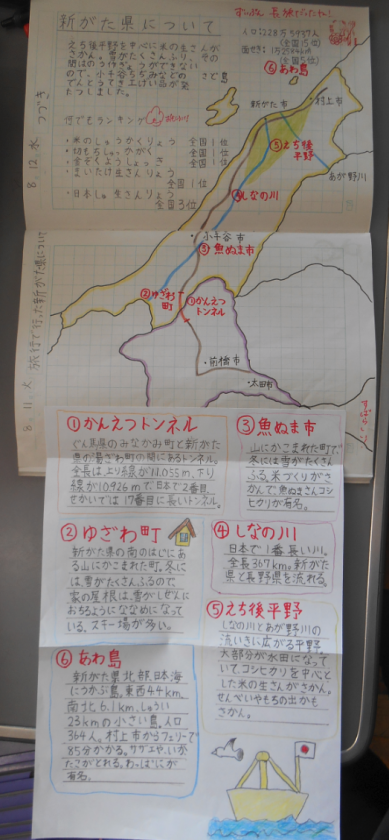 新がた県について
えち後平野を中心に米の生さんが
さかん。雪がたくさんふり、その
間はのうさぎょうができない
ので、小千谷ちぢみなどの
でんとうてき工げい品が発
たつしました。
何でもランキング
・米のしゅうかくりょう 全国1位
・切もちしゅっかがく 全国1位
・金ぞくようしょっき 全国1位
・まいたけ生さんりょう
全国1位
・日本しゅ生さんりょう
全国3位
(全国15位)
(全国5位)
さど島
⑥あわ島
新がた市
村上市
⑤えち後
平野
あが野川
④しなの川
小千谷市
③魚ぬま市
②ゆざわ
町
①かんえつ
トンネル
前橋市
太田市
8.12.水 つづき
8.11.火 旅行で行った新がた県について
①かんえつトンネル
ぐんま県のみなかみ町と新がた
県のゆざわ町の間にあるトンネル。
全長は上り線が11.055m、下り
線が10.926mで、日本で2番目、
せかいでは17番目に長いトンネル。
②ゆざわ町
新がた県の南のはじにあ
る山にかこまれた町。冬に
は、雪がたくさんふるので、
家の屋根は、雪がしぜんに
おちるようにななめになって
いる。スキー場が多い。
⑥あわ島
新がた県北部、日本海
にうかぶ島。東西4.4km、
南北6.1km、しゅうい
23kmの小さい島。人口
364人。村上市からフェリーで
85分かかる。サザエや、いか、
たこがとれる。わっぱにが
有名。
③魚ぬま市
山にかこまれた町で、
冬には雪がたくさん
ふる。米づくりがさ
かんで、魚ぬまさんコシ
ヒカリが有名。
④しなの川
日本で1番長い川。
全長367km。新がた
県と長野県を流れる。
⑤えち後平野
しなの川とあが野川の
流いきに広がる平野。
大部分が水田になって
いて、コシヒカリを中心と
した米の生さんがさかん。
せんべいやもちの出かも
さかん。